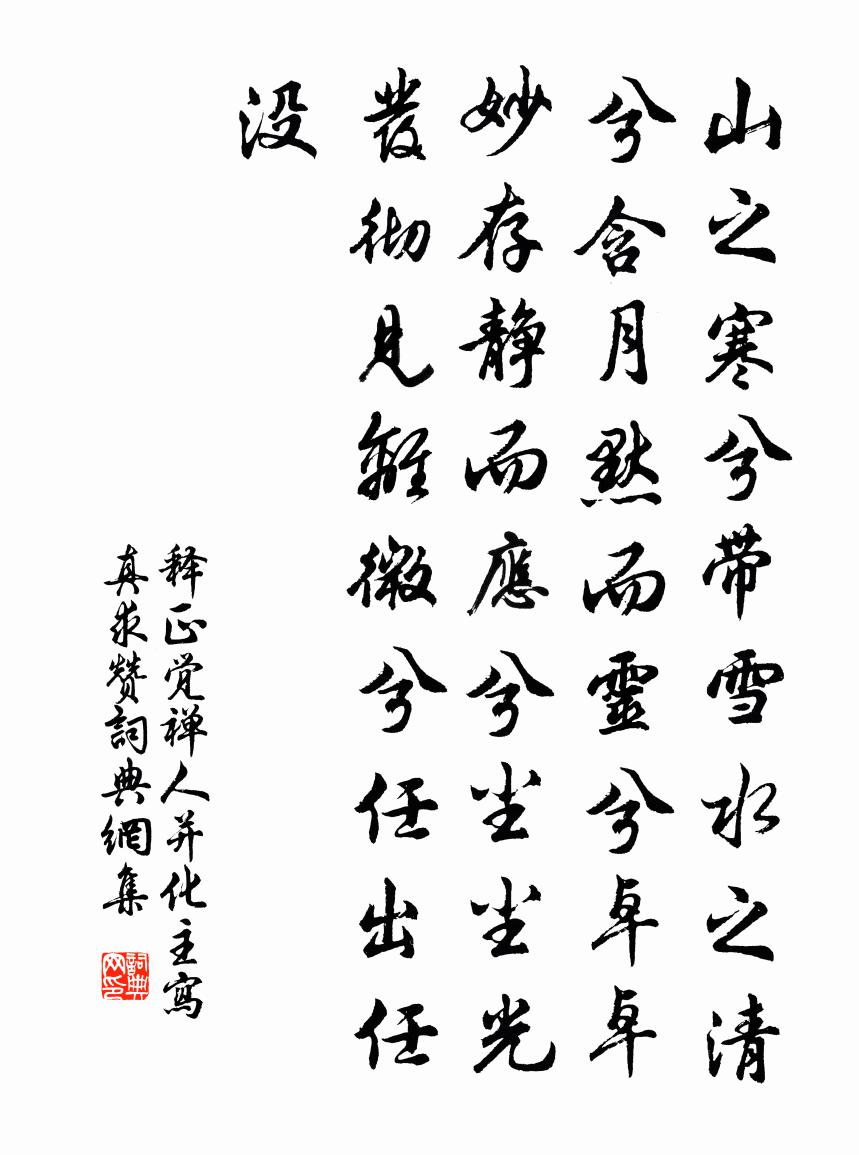 山之寒兮带雪水之清
兮含月默而靈兮卓卓
妙存静而應兮尘尘光
發彻見離微兮任出任
没
释正觉禅人并化主寫
真求赞詞典網集
詞典
网印